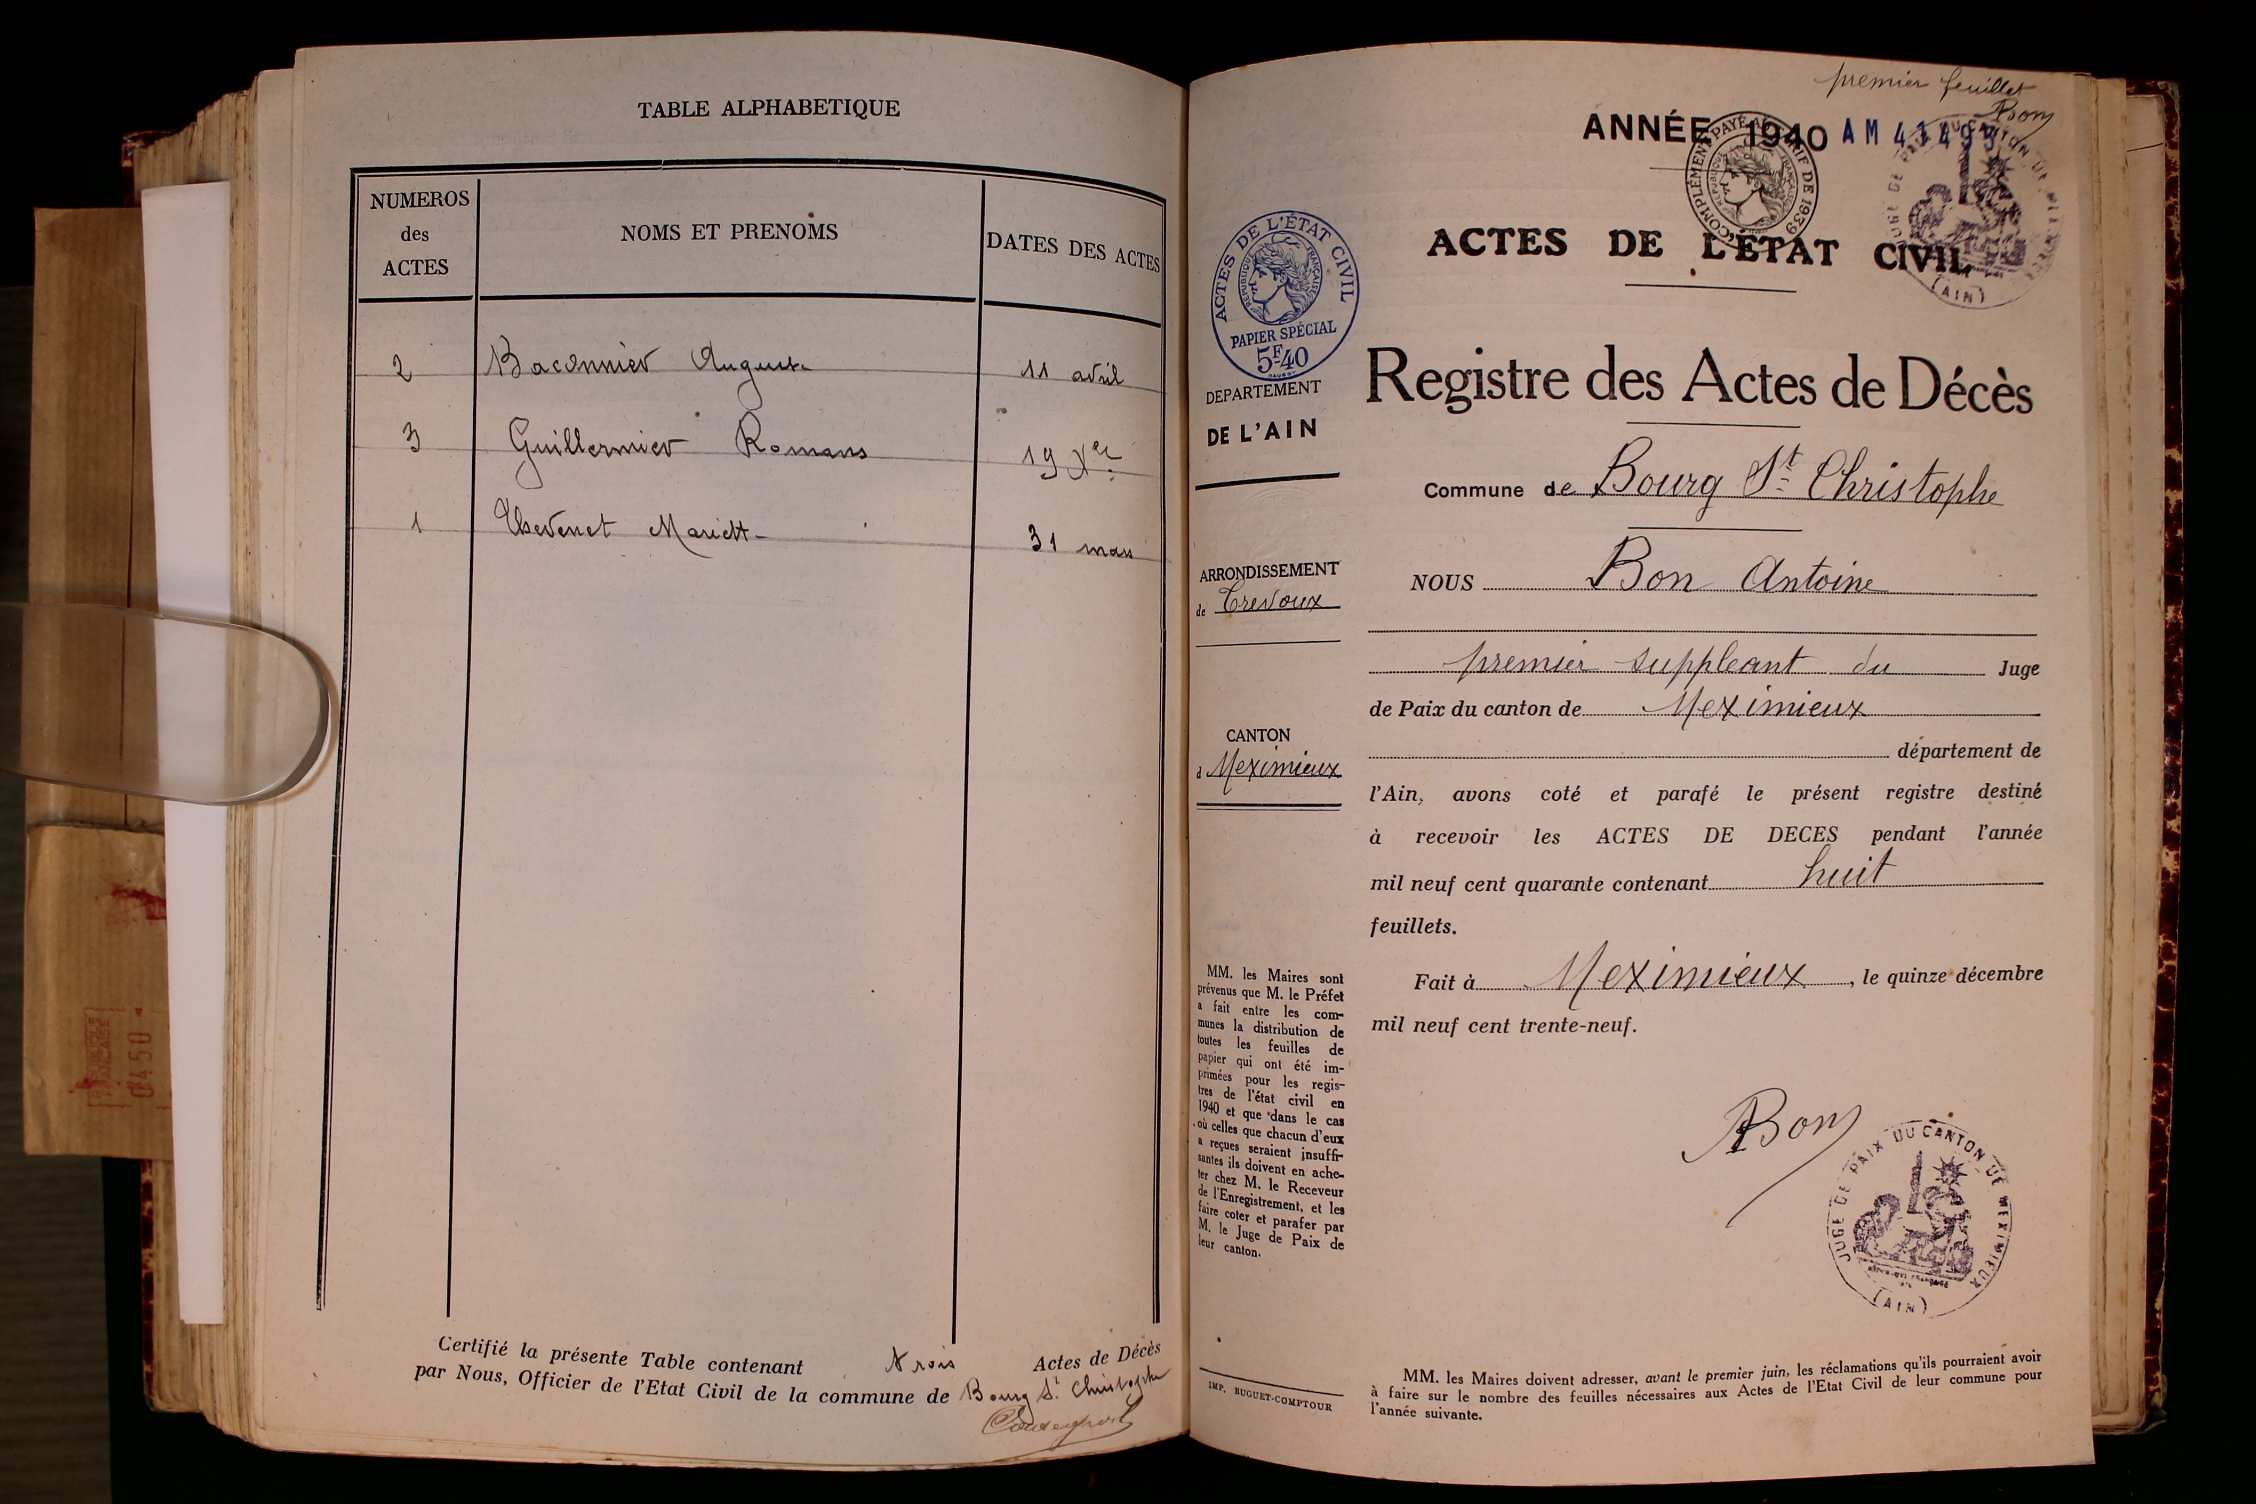 TABLE ALPHABETIQUE
NUMEROS
des
ACTES
NOMS ET PRENOMS
DATES DES ACTES
2 Baconnier Auguste 11 avril
3 Guillermier Romans 19 Xer
1 Thevenet Mariett 31 mars
Certifié la présente Table contenant trois Actes de Décès
par Nous, Officier de l'Etat Civil de la commune de Bourg St Christophe
premier feuillet
Bon
ANNÉE 1940
COMPLÉMENT PAYÉ
TARIF DE 1939
ACTES DE L'ÉTAT CIVIL
RÉPUBLIQUE FRANÇAISE
PAPIER SPÉCIAL
5F.40
DEPARTEMENT
DE L'AIN
ARRONDISSEMENT
de Trevoux
CANTON
d Meximieux
MM. les Maires sont
prévenus que M. le Préfet
a fait entre les com-
munes la distribution de
toutes les feuilles de
papier qui ont été im-
primées pour les regis-
tres de l'état civil en
1940 et que dans le cas
où celles que chacun d'eux
a reçues seraient insuffi-
santes ils doivent en ache-
ter chez M. le Receveur
de l'Enregistrement, et les
faire coter et parafer par
M. le Juge de Paix de
leur canton.
IMP. BUGUET-COMPTOUR
ACTES DE L'ÉTAT CIVIL
Registre des Actes de Décès
Commune de Bourg St Christophe
NOUS Bon Antoine
premier suppleant du Juge
de Paix du canton de Meximieux
département de
l'Ain, avons coté et parafé le présent registre destiné
à recevoir les ACTES DE DECES pendant l'année
mil neuf cent quarante contenant huit
feuillets.
Fait à Meximieux, le quinze décembre
mil neuf cent trente-neuf.
Bon
JUGE DE PAIX DU CANTON DE MEXIMIEUX
(AIN)
MM. les Maires doivent adresser, avant le premier juin, les réclamations qu'ils pourraient avoir
à faire sur le nombre des feuilles nécessaires aux Actes de l'Etat Civil de leur commune pour
l'année suivante.